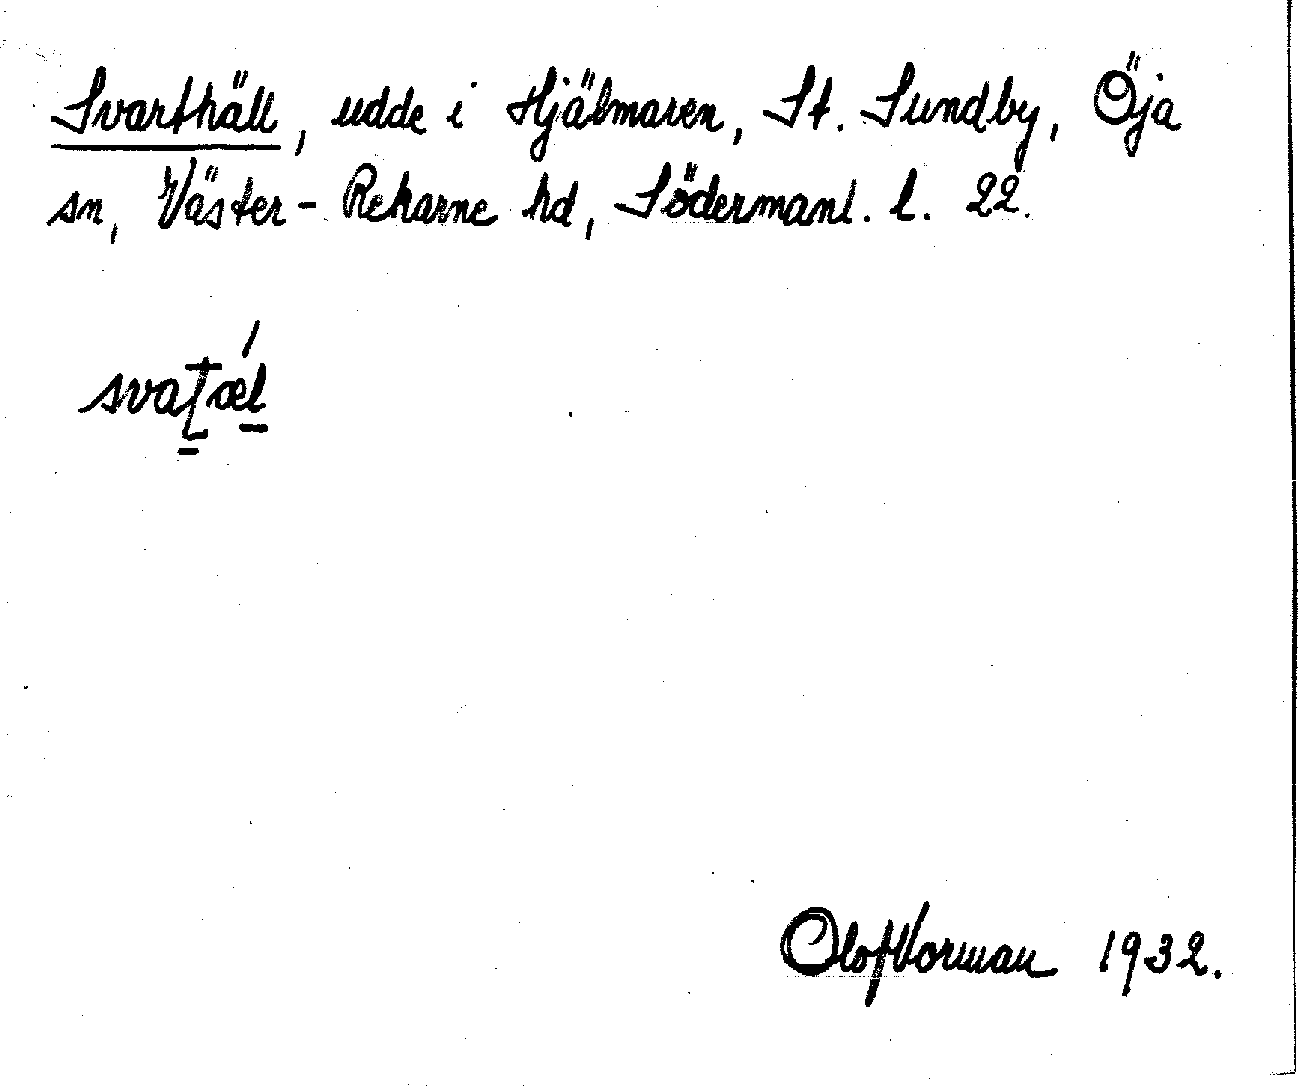 Svarthäll, udde i Hjälmaren, St. Sundby, Öja
sn, Väster-Rekarne hd, Södermanl. l. 22.
svat̲ǽl̲
Olof Vorman 1932.